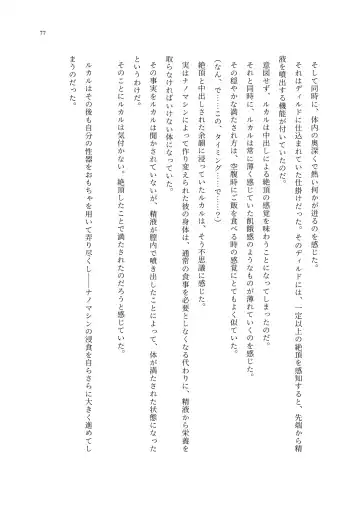 77
そして同時に、体内の奥深くで熱い何かが迸るのを感じた。
それはディルドに仕込まれていた仕掛けだった。そのディルドには、一定以上の絶頂を感知すると、先端から精
液を噴出する機能が付いていたのだ。
意図せず、ルカルは中出しによる絶頂の感覚を味わうことになってしまったのだ。
それと同時に、ルカルは常に薄く感じていた飢餓感のようなものが薄れていくのを感じた。
その穏やかな満たされ方は、空腹時にご飯を食べる時の感覚にとてもよく似ていた。
(なん、で……この、タイミング……で……?)
絶頂と中出しされた余韻に浸っていたルカルは、そう不思議に感じた。
実はナノマシンによって作り変えられた彼の身体は、通常の食事を必要としなくなる代わりに、精液から栄養を
取らなければいけない体になっていた。
その事実をルカルは聞かされていないが、精液が膣内で噴き出したことによって、体が満たされた状態になった
というわけだ。
そのことにルカルは気付かない。絶頂したことで満たされたのだろうと感じていた。
ルカルはその後も自分の性器をおもちゃを用いて弄り尽くし――ナノマシンの浸食を自らさらに大きく進めてし
まうのだった。